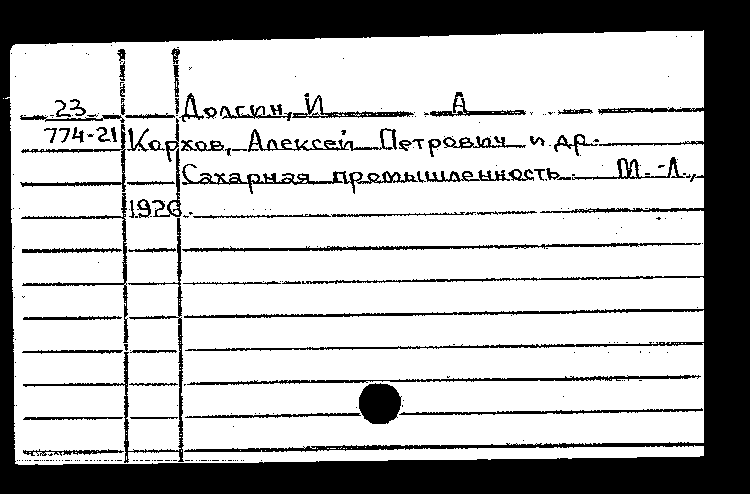 23 Долгин, И А
774-21 Корхов, Алексей Петрович и др.
Сахарная промышленность. М.-Л.,
1926.